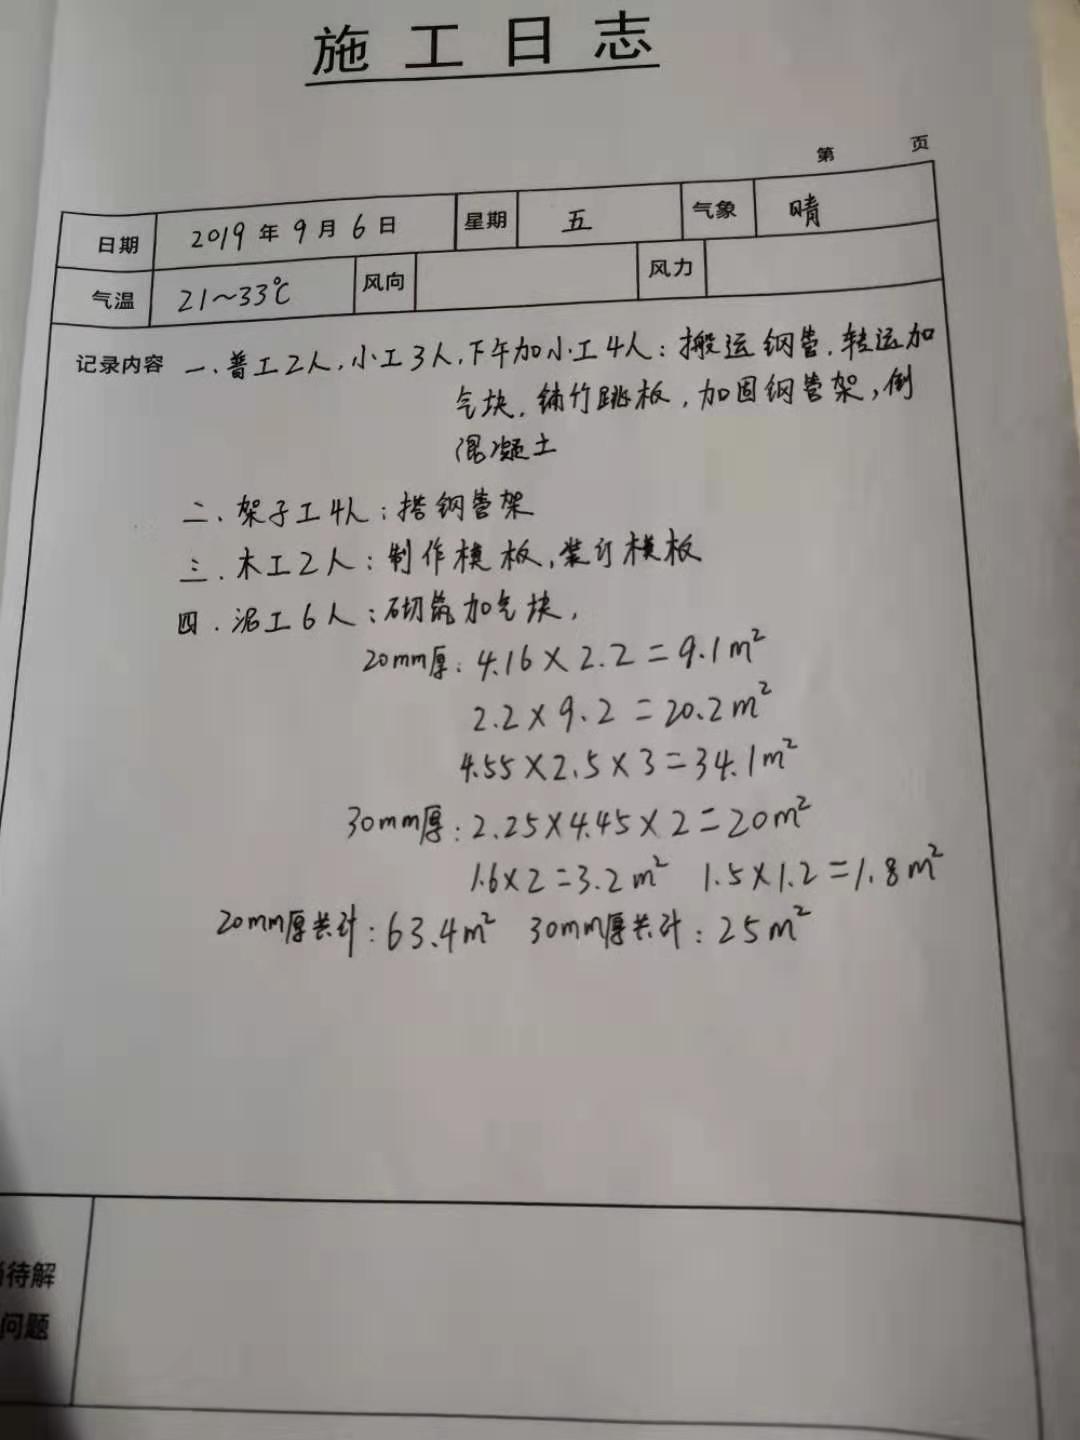 施工日志
第 页
日期 2019年9月6日 星期 五 气象 晴
气温 21～33℃ 风向 风力
记录内容 一.普工2人,小工3人,下午加小工4人:搬运钢管,转运加
气块,铺竹跳板,加固钢管架,倒
混凝土
二.架子工4人:搭钢管架
三.木工2人:制作模板,装订模板
四.泥工6人:砌筑加气块,
20mm厚:4.16×2.2=9.1m²
2.2×9.2=20.2m²
4.55×2.5×3=34.1m²
30mm厚:2.25×4.45×2=20m²
1.6×2=3.2m² 1.5×1.2=1.8m²
20mm厚共计:63.4m² 30mm厚共计:25m²
待解
问题